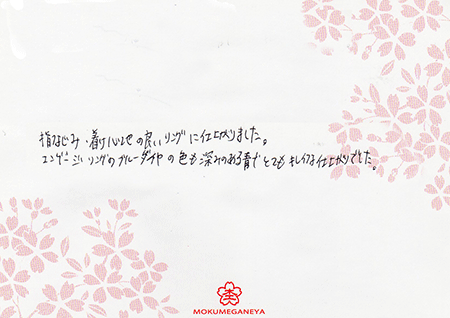 指なじみ・着け心地の良いリングに仕上がりました。
エンゲージリングのブルーダイヤの色も深みのある青でとてもキレイな仕上がりでした。
MOKUMEGANEYA